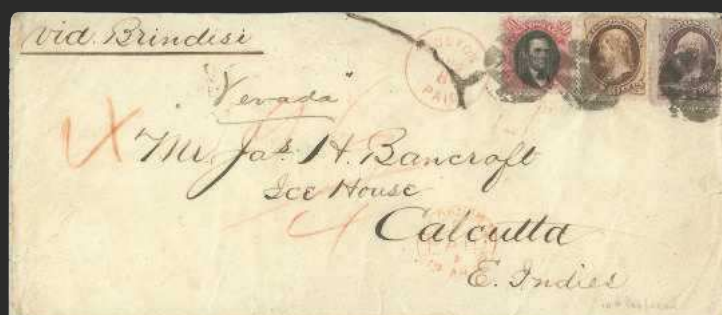 via Brindisi
BOSTON
PAID
"Nevada"
Mr. Jas. H. Bancroft
Ice House
Calcutta
E. Indies